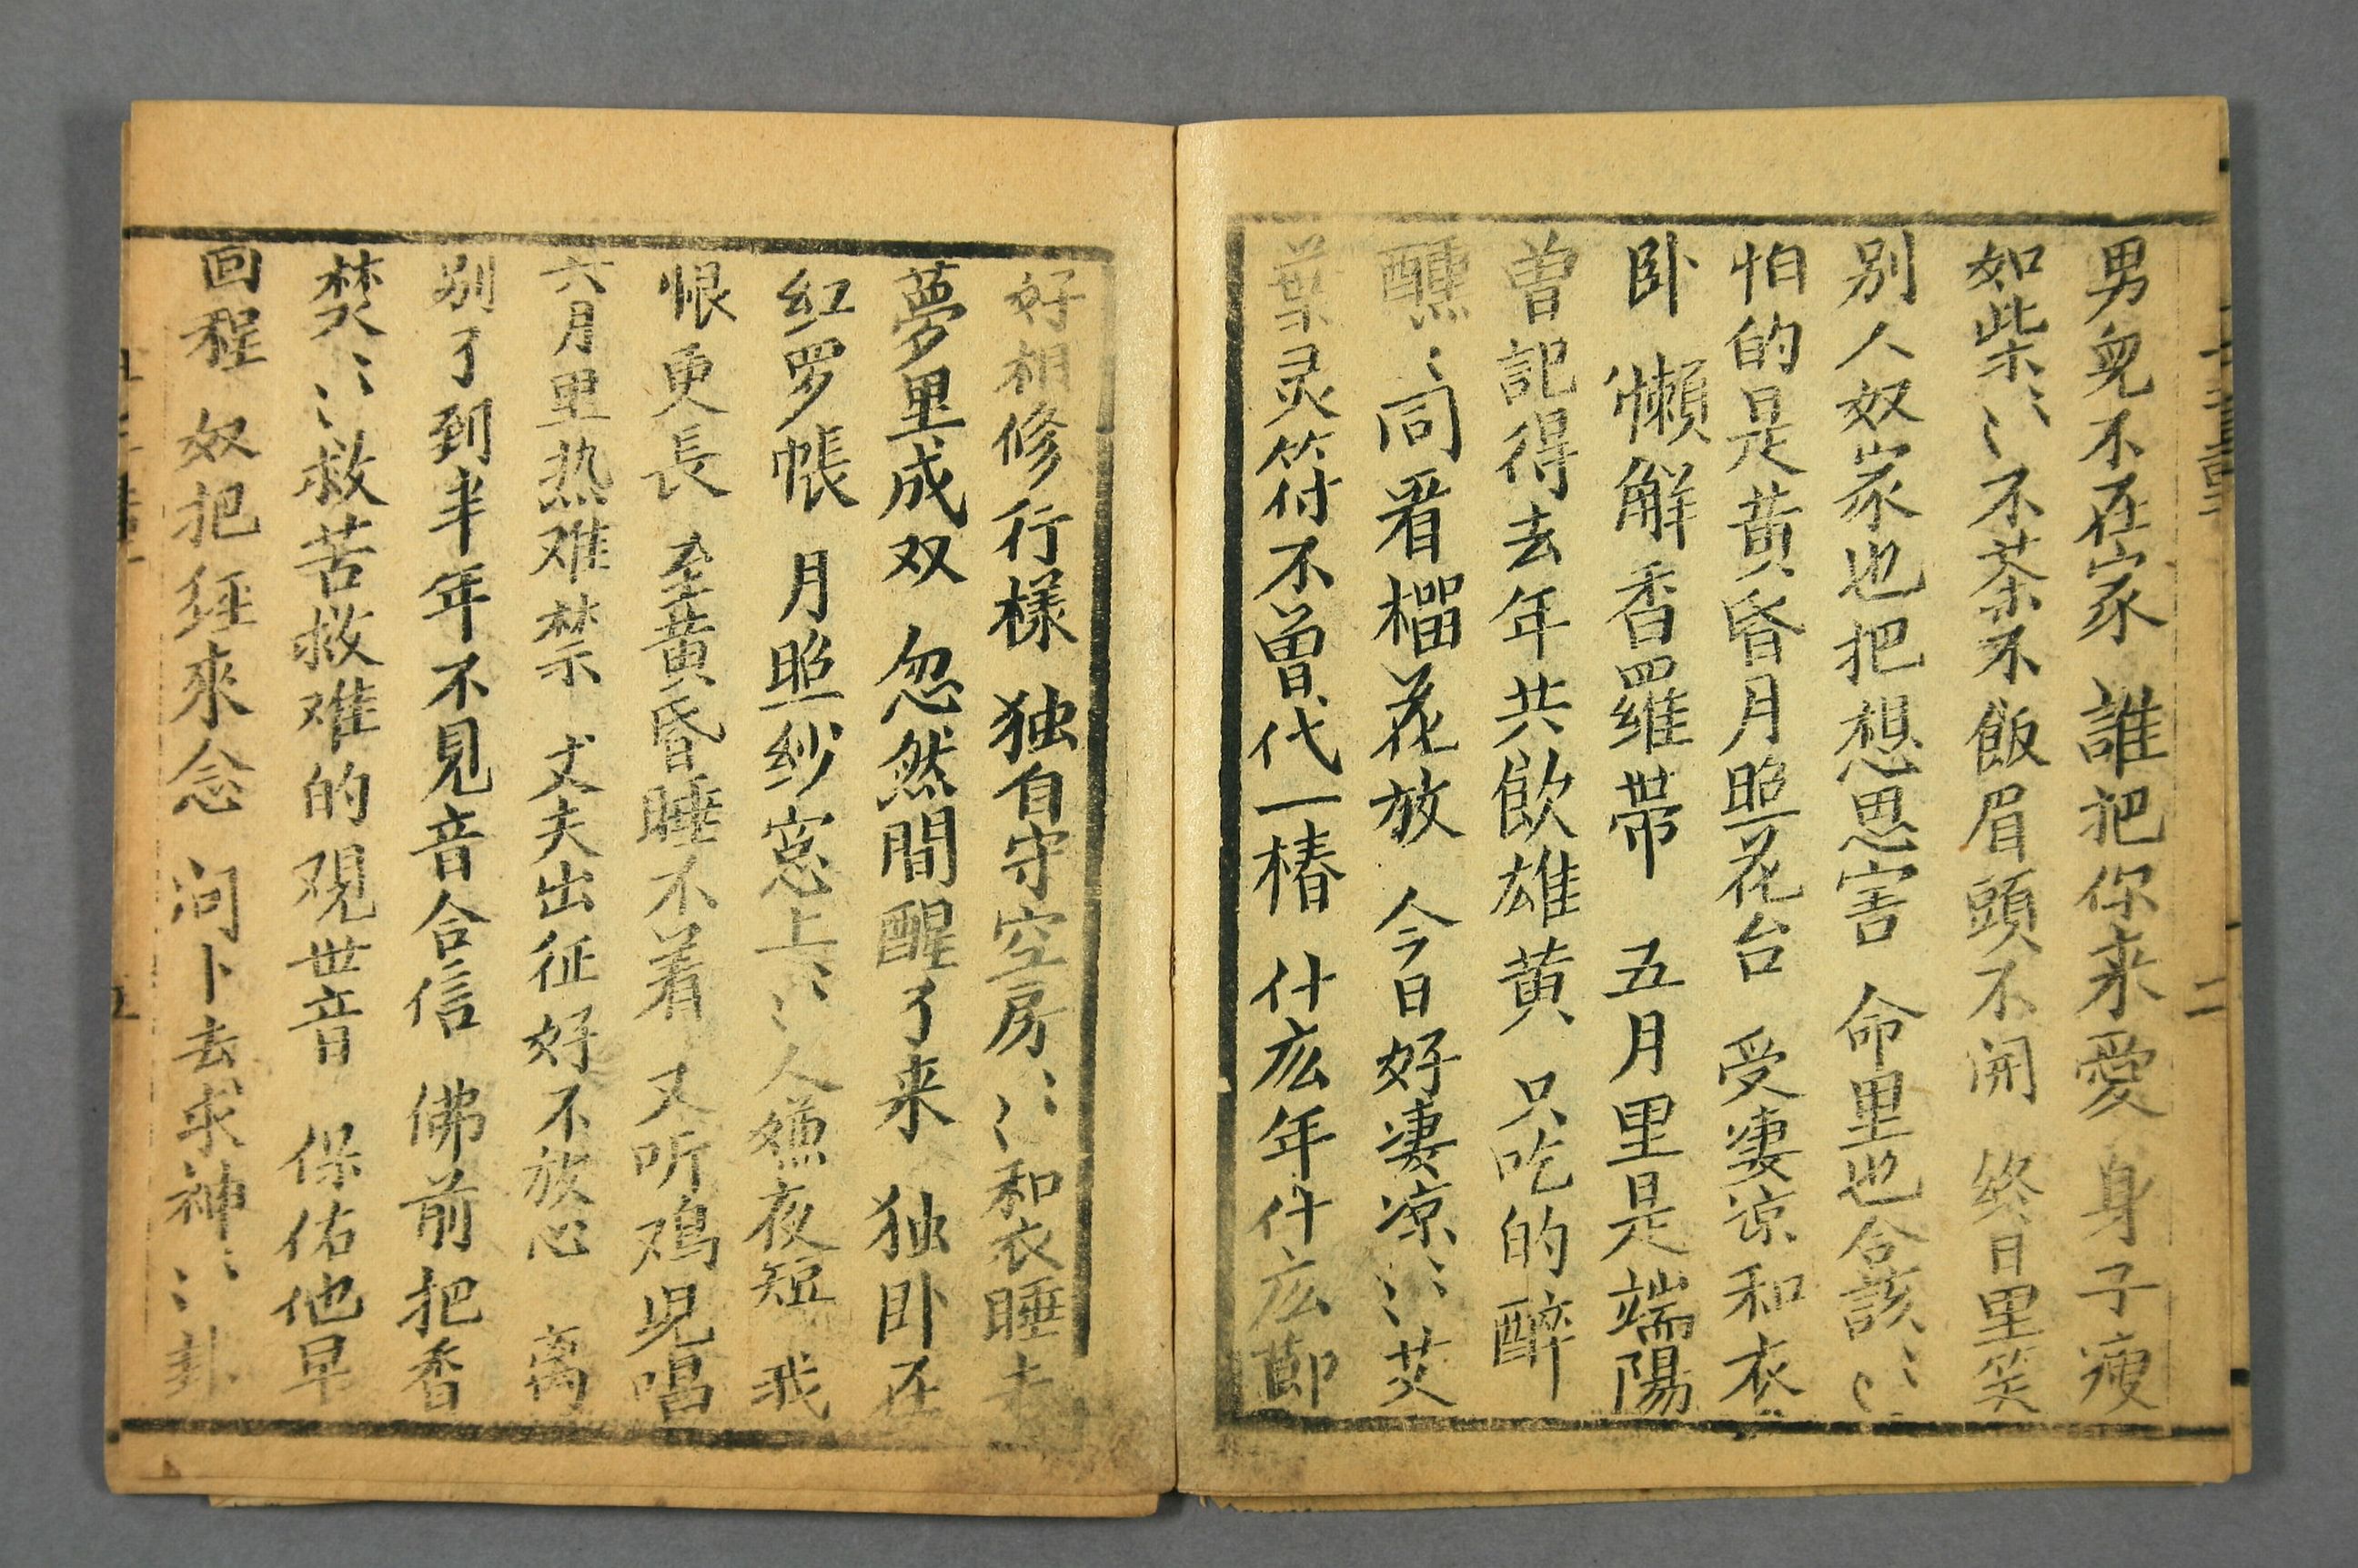 男兒不在家 誰把你来愛 身子瘦
如柴〻〻不茶不飯眉頭不開 終日里笑
别人奴家也把想思害 命里也合該〻〻
怕的是黄昏月照花台 受凄凉和衣
卧 懶解香羅帶 五月里是端陽
曾記得去年共飲雄黄 只吃的醉
醺〻同看榴花放 今日好凄凉〻〻艾
葉灵符不曾代一樁 什庅年什庅節
好相修行樣 独自守空房〻〻和衣睡去
夢里成双 忽然間醒了来 独卧在
红罗帳 月照紗窓上〻〻人嫌夜短 我
恨更長 至黄昏睡不着 又听鸡児唱
六月里热难禁 丈夫出征好不放心 离
别了到半年不見音合信 佛前把香
焚〻〻救苦救难的观世音 保佑他早
回程 奴把經來念 问卜去求神〻〻卦
二